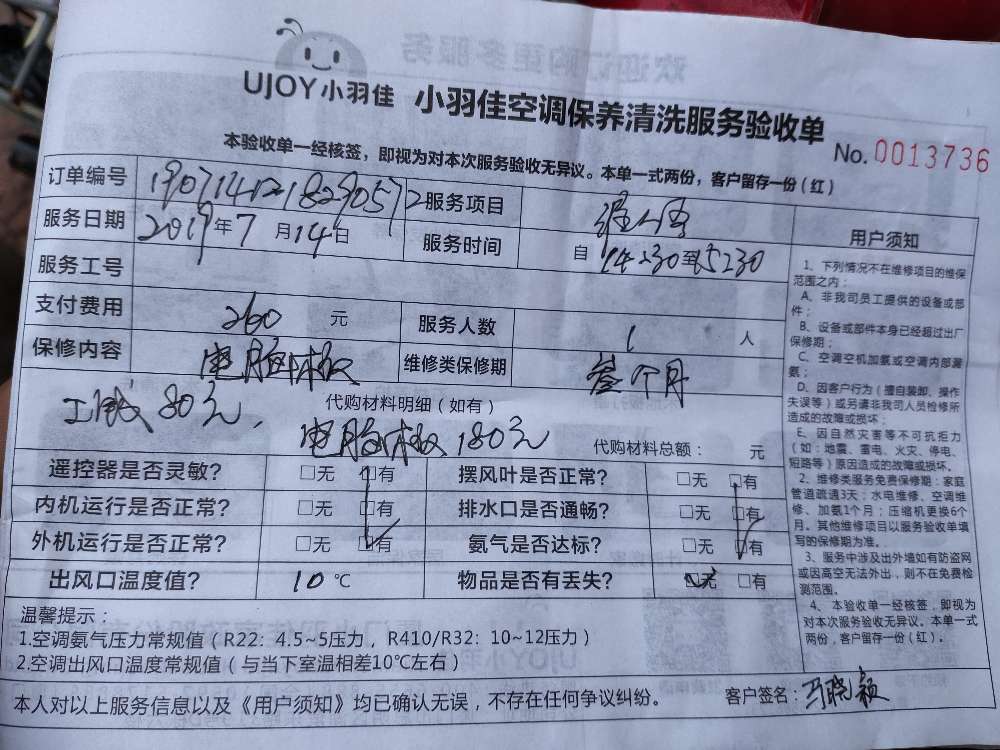 UJOY小羽佳 小羽佳空调保养清洗服务验收单
No. 0013736
本验收单一经核签，即视为对本次服务验收无异议。本单一式两份，客户留存一份（红）
订单编号 服务项目
服务日期 2019年7月14日 服务时间 自14:30到15:30
服务工号
支付费用 260元 服务人数 1人
保修内容 电脑板 维修类保修期 叁个月
工钱80元， 代购材料明细（如有）
电脑板180元 代购材料总额： 元
遥控器是否灵敏？ □无 □有 摆风叶是否正常？ □无 □有
内机运行是否正常？ □无 □有 排水口是否通畅？ □无 □有
外机运行是否正常？ □无 □有 氨气是否达标？ □无 □有
出风口温度值？ 10℃ 物品是否有丢失？ □无 □有
温馨提示：
1.空调氨气压力常规值（R22：4.5~5压力，R410/R32：10~12压力）
2.空调出风口温度常规值（与当下室温相差10℃左右）
本人对以上服务信息以及《用户须知》均已确认无误，不存在任何争议纠纷。 客户签名：马晓颖
用户须知
1、下列情况不在维修项目的维保
范围之内：
A、非我司员工提供的设备或部
件；
B、设备或部件本身已经超过出厂
保修期；
C、空调空机加氨或空调内部漏
氨；
D、因客户行为（擅自装卸、操作
失误等）或另请非我司人员检修所
造成的故障或损坏；
E、因自然灾害等不可抗拒力
（如:地震、雷电、火灾、停电、
短路等）原因造成的故障或损坏。
2、维修类服务免费保修期：家庭
管道疏通3天；水电维修、空调维
修、加氨1个月；压缩机更换6个
月。其他维修项目以服务验收单填
写的保修期为准。
3、服务中涉及出外墙如有防盗网
或因高空无法外出，则不在免费检
测范围。
4、本验收单一经核签，即视为
对本次服务验收无异议。本单一式
两份，客户留存一份（红）。